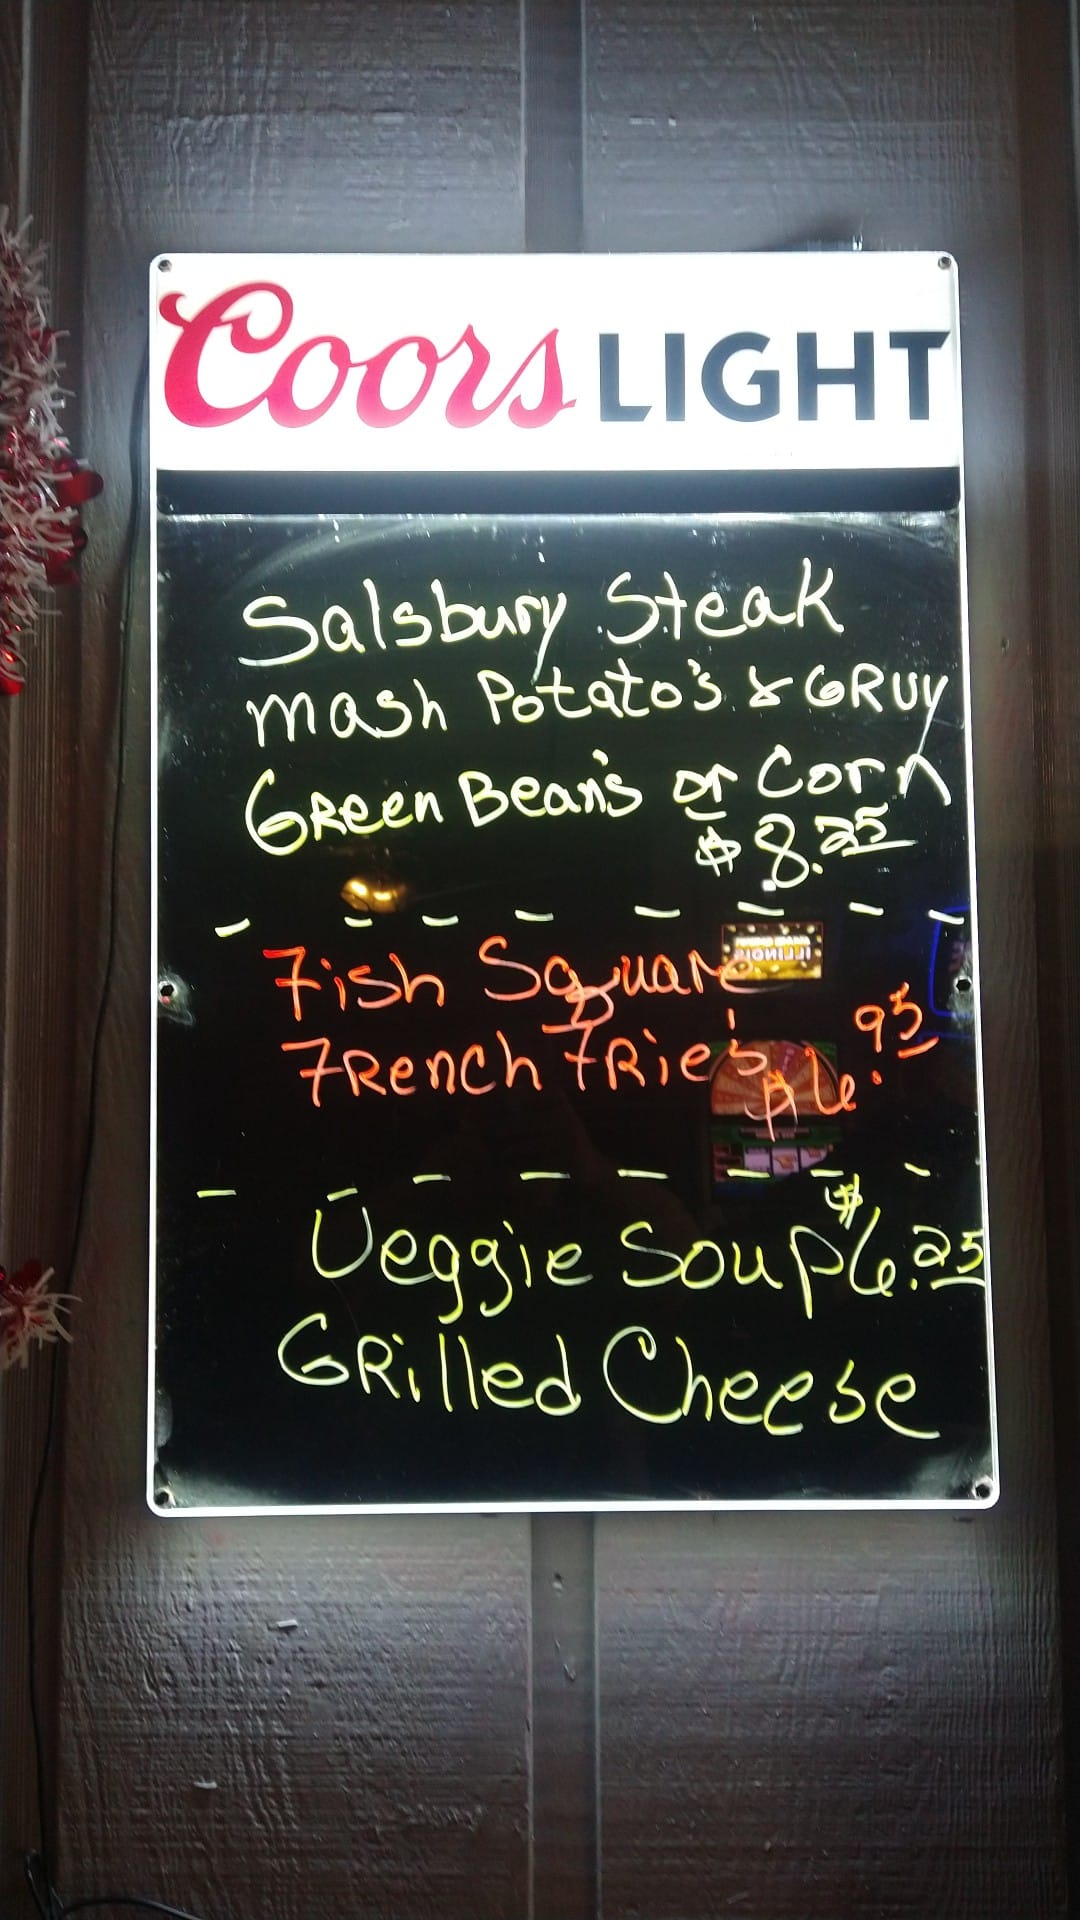 Coors LIGHT
Salsbury Steak
Mash Potato's & GRUY
GReen Bean's or Corn
$8.25
Fish Square
FRench FRie's $6.95
Veggie Soup $6.25
GRilled Cheese